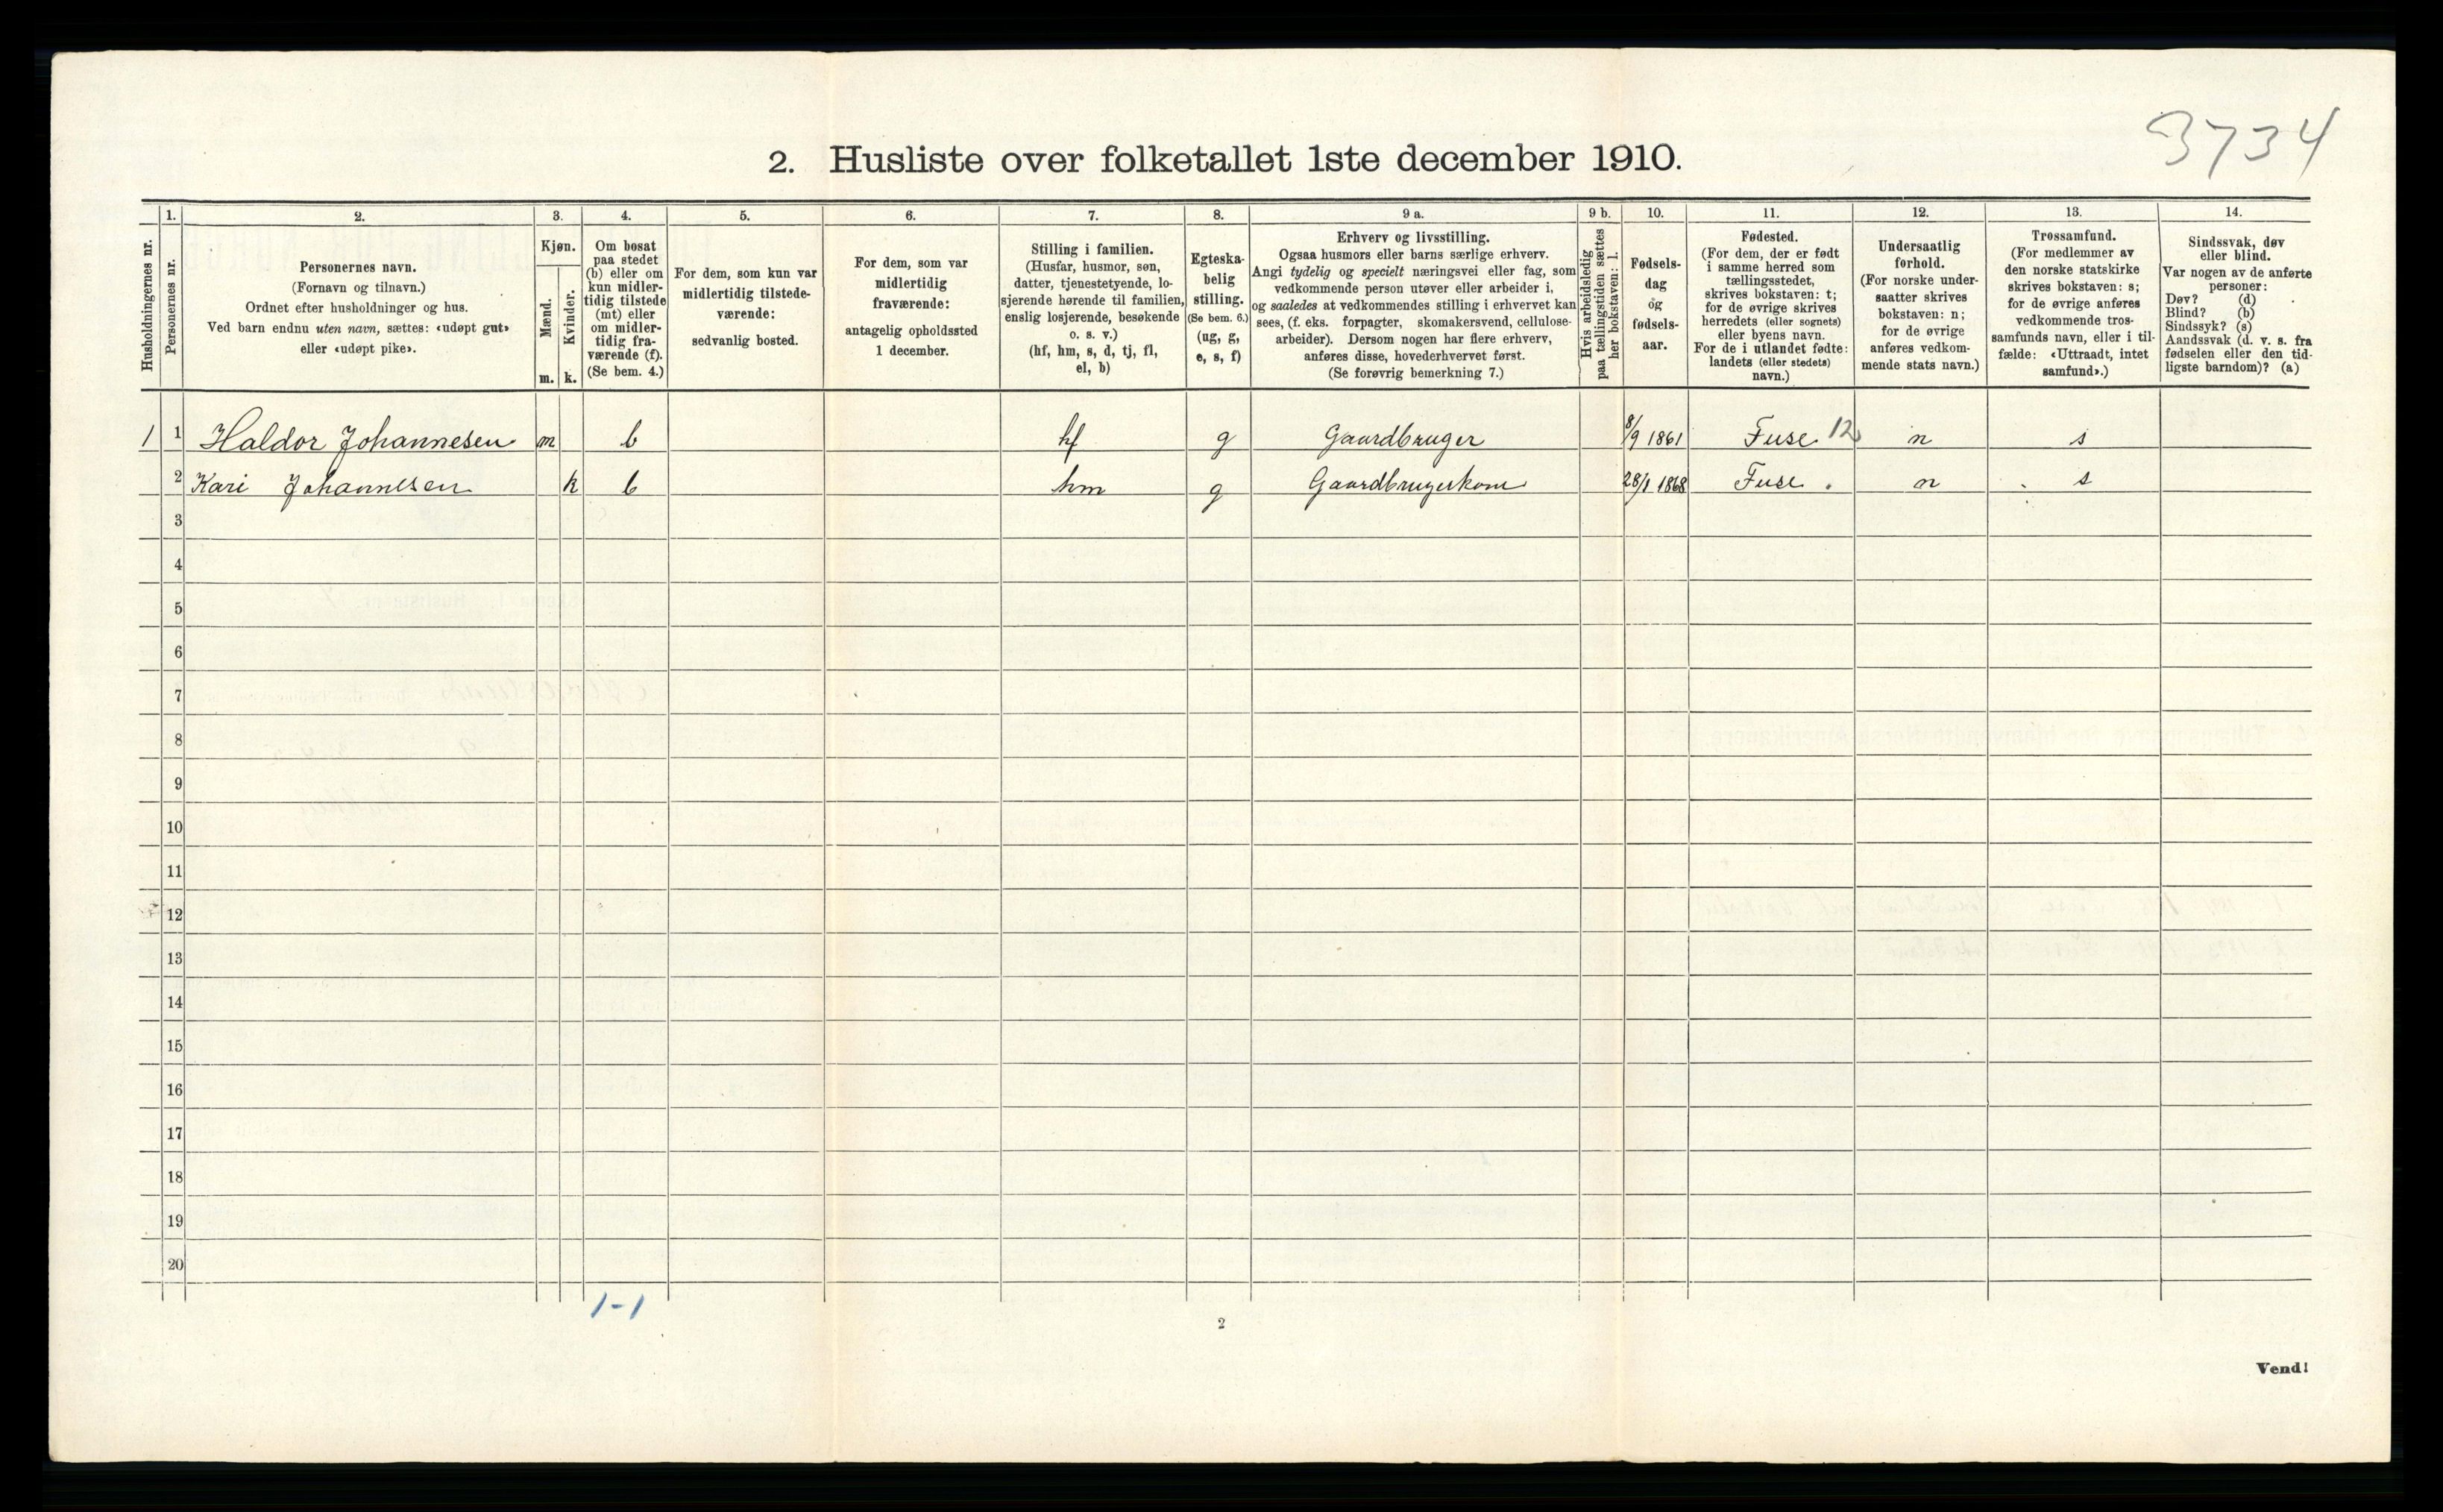 3734
2. Husliste over folketallet 1ste december 1910.
Husholdningernes nr.
1.
Personernes nr.
2.
Personernes navn.
(Fornavn og tilnavn.)
Ordnet efter husholdninger og hus.
Ved barn endnu uten navn, sættes: «udøpt gut»
eller «udøpt pike».
3.
Kjøn.
Mænd.
Kvinder.
m. k.
4.
Om bosat
paa stedet
(b) eller om
kun midler-
tidig tilstede
(mt) eller
om midler-
tidig fra-
værende (f).
(Se bem. 4.)
5.
For dem, som kun var
midlertidig tilstede-
værende:
sedvanlig bosted.
6.
For dem, som var
midlertidig
fraværende:
antagelig opholdssted
1 december.
7.
Stilling i familien.
(Husfar, husmor, søn,
datter, tjenestetyende, lo-
sjerende hørende til familien,
enslig losjerende, besøkende
o. s. v.)
(hf, hm, s, d, tj, fl,
el, b)
8.
Egteska-
belig
stilling.
(Se bem. 6.)
(ug, g,
e, s, f)
9 a.
Erhverv og livsstilling.
Ogsaa husmors eller barns særlige erhverv.
Angi tydelig og specielt næringsvei eller fag, som
vedkommende person utøver eller arbeider i,
og saaledes at vedkommendes stilling i erhvervet kan
sees, (f. eks. forpagter, skomakersvend, cellulose-
arbeider). Dersom nogen har flere erhverv,
anføres disse, hovederhvervet først.
(Se forøvrig bemerkning 7.)
9 b.
Hvis arbeidsledig
paa tællingstiden sættes
her bokstaven: l.
10.
Fødsels-
dag
og
fødsels-
aar.
11.
Fødested.
(For dem, der er født
i samme herred som
tællingsstedet,
skrives bokstaven: t;
for de øvrige skrives
herredets (eller sognets)
eller byens navn.
For de i utlandet fødte:
landets (eller stedets)
navn.)
12.
Undersaatlig
forhold.
(For norske under-
saatter skrives
bokstaven: n;
for de øvrige
anføres vedkom-
mende stats navn.)
13.
Trossamfund.
(For medlemmer av
den norske statskirke
skrives bokstaven: s;
for de øvrige anføres
vedkommende tros-
samfunds navn, eller i til-
fælde: «Uttraadt, intet
samfund».)
14.
Sindssvak, døv
eller blind.
Var nogen av de anførte
personer:
Døv? (d)
Blind? (b)
Sindssyk? (s)
Aandssvak (d. v. s. fra
fødselen eller den tid-
ligste barndom)? (a)
1 1 Haldor Johannesen m b hf g Gaardbruger 8/9 1861 Fuse 12 n s
2 Kari Johannesen k b hm g Gaardbrugerkone 28/1 1868 Fuse n s
3
4
5
6
7
8
9
10
11
12
13
14
15
16
17
18
19
20
1-1
2
Vend!